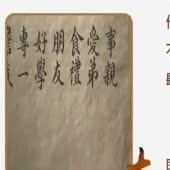 事親
愛弟
食禮
朋友
好學
專一